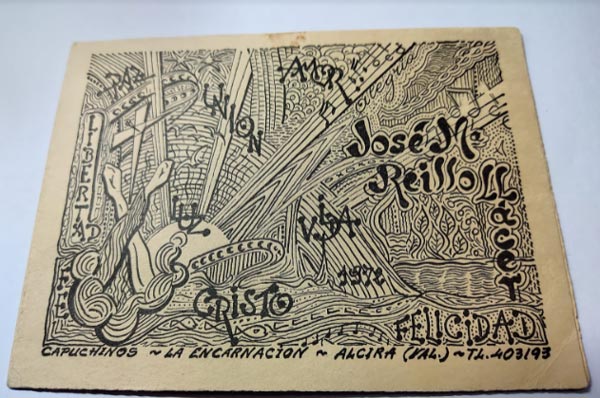 PAZ
AMOR
UNION
alegria
LIBERTAD
José Mª
Reillo Llacer
LUZ
VIDA
FE
1972
CRISTO
FELICIDAD
CAPUCHINOS ~ LA ENCARNACION ~ ALCIRA (VAL.) ~ TL. 403193